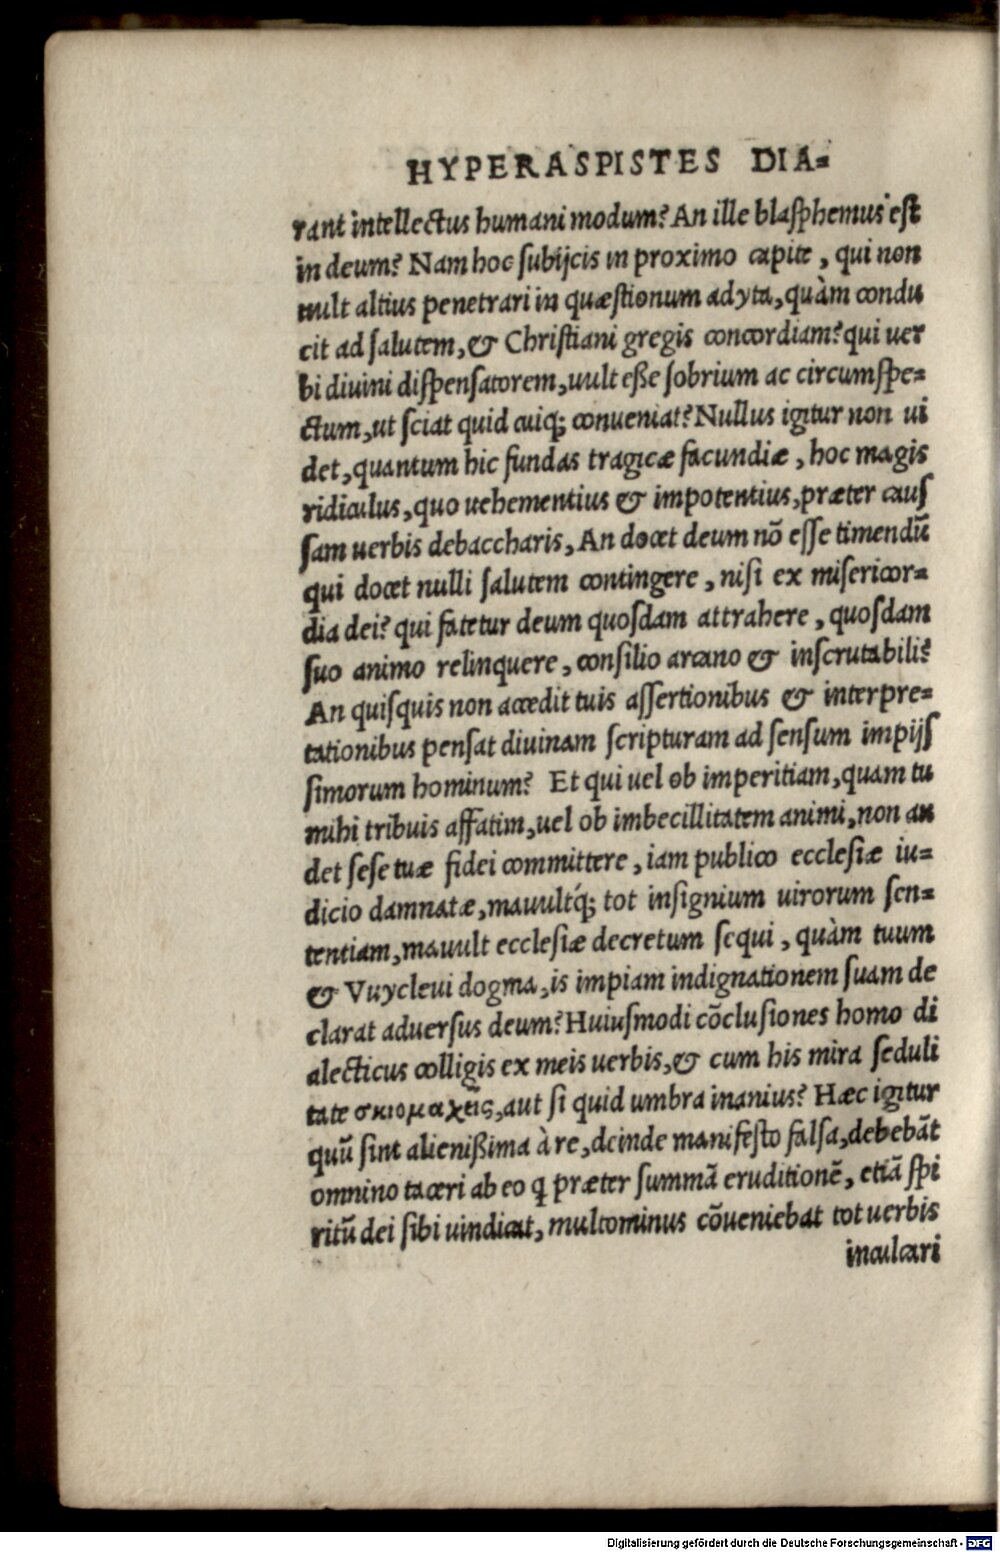 HYPERASPISTES DIA=
rant intellectus humani modum? An ille blasphemus est
in deum? Nam hoc subijcis in proximo capite, qui non
uult altius penetrari in quæstionum adyta, quàm condu
cit ad salutem, & Christiani gregis concordiam? qui uer
bi diuini dispensatorem, uult eße sobrium ac circumspe=
ctum, ut sciat quid cuiq; conueniat? Nullus igitur non ui
det, quantum hic fundas tragicæ facundiæ, hoc magis
ridiculus, quo uehementius & impotentius, præter caus
sam uerbis debaccharis, An docet deum nō esse timendū
qui docet nulli salutem contingere, nisi ex misericor=
dia dei? qui fatetur deum quosdam attrahere, quosdam
suo animo relinquere, consilio arcano & inscrutabili?
An quisquis non accedit tuis assertionibus & interpre=
tationibus pensat diuinam scripturam ad sensum impijs
simorum hominum? Et qui uel ob imperitiam, quam tu
mihi tribuis affatim, uel ob imbecillitatem animi, non au
det sese tuæ fidei committere, iam publico ecclesiæ iu=
dicio damnatæ, mauultq́; tot insignium uirorum sen=
tentiam, mauult ecclesiæ decretum sequi, quàm tuum
& Vuycleui dogma, is impiam indignationem suam de
clarat aduersus deum? Huiusmodi cōclusiones homo di
alecticus colligis ex meis uerbis, & cum his mira seduli
tate σκιομαχεῖς, aut si quid umbra inanius? Hæc igitur
quū sint alienißima à re, deinde manifesto falsa, debebāt
omnino taceri ab eo q præter summā eruditionē, etiā spi
ritū dei sibi uindicat, multominus cōueniebat tot uerbis
inculcari
Digitalisierung gefördert durch die Deutsche Forschungsgemeinschaft - DFG